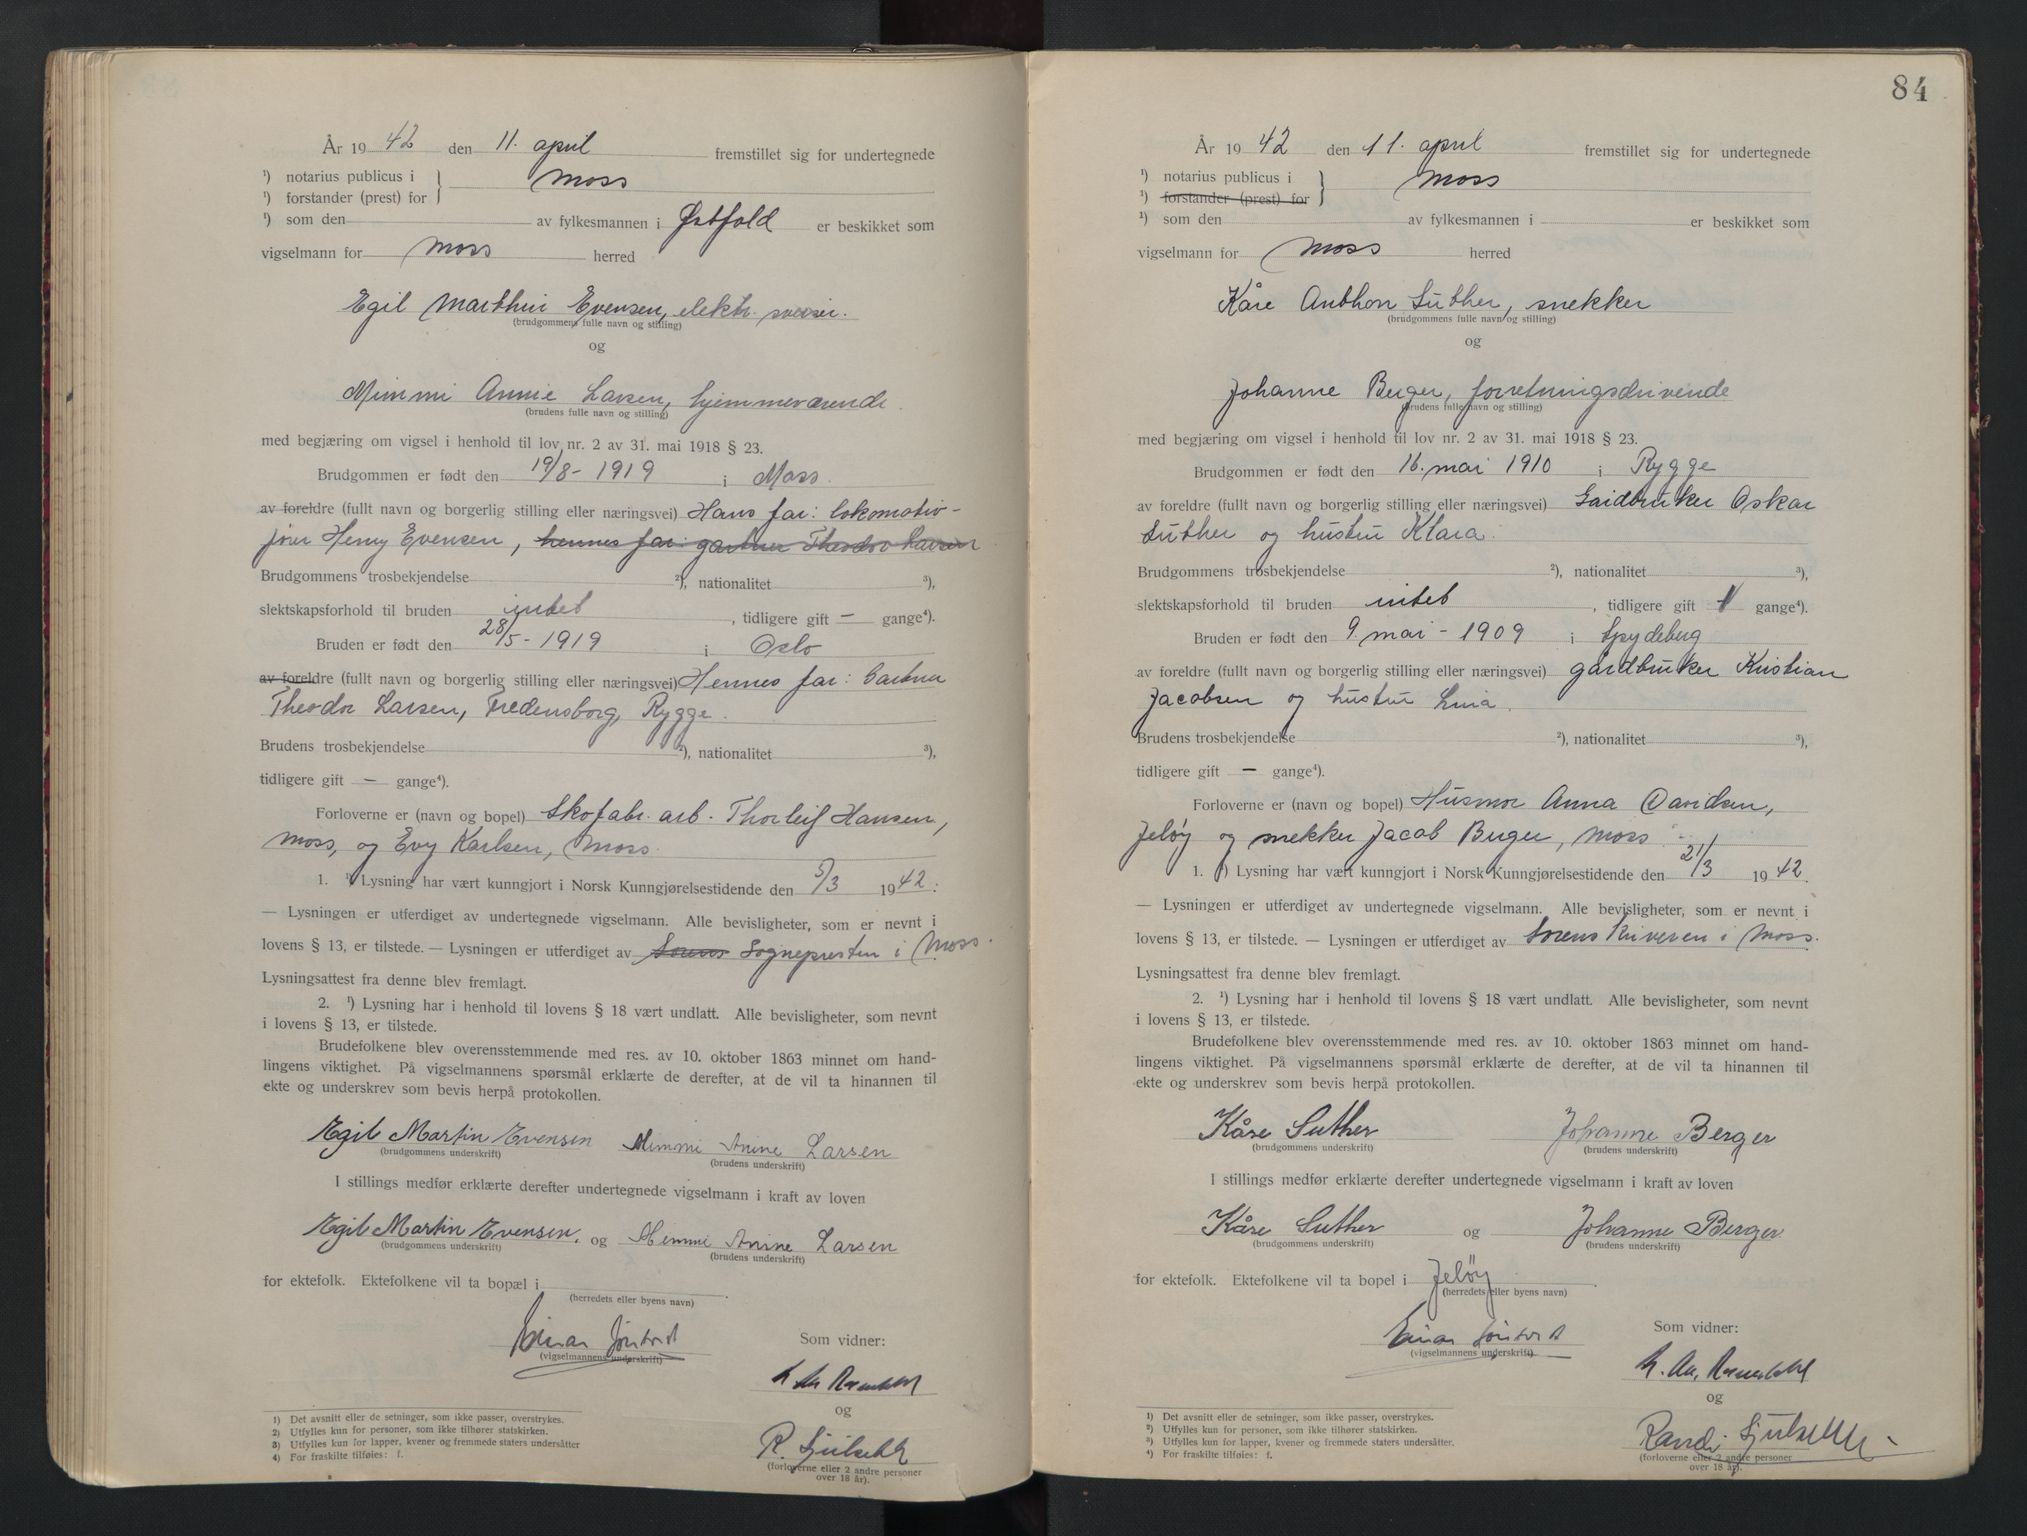 År 19 42 den 11. april fremstillet sig for undertegnede
¹) notarius publicus i
Moss
¹) forstander (prest) for
¹) som den av fylkesmannen i Østfold er beskikket som
vigselmann for Moss herred
Egil Marthin Evensen, elektr. sveiser.
(brudgommens fulle navn og stilling)
og
Mimmi Annie Larsen, hjemmeværende.
(brudens fulle navn og stilling)
med begjæring om vigsel i henhold til lov nr. 2 av 31. mai 1918 § 23.
Brudgommen er født den 19/8 - 1919 i Moss.
av foreldre (fullt navn og borgerlig stilling eller næringsvei) Hans far: lokomotiv-
fører Henry Evensen, hennes far: gartner Theodor Larsen
Brudgommens trosbekjendelse ²), nationalitet ³),
slektskapsforhold til bruden intet, tidligere gift — gange⁴).
Bruden er født den 28/5 - 1919 i Oslo
av foreldre (fullt navn og borgerlig stilling eller næringsvei) Hennes far: Gartner
Theodor Larsen, Fredensborg, Rygge.
Brudens trosbekjendelse ²), nationalitet ³),
tidligere gift — gange⁴).
Forloverne er (navn og bopel) Skofabr. arb. Thorleif Hansen,
Moss, og Evy Karlsen, Moss.
1. ¹) Lysning har vært kunngjort i Norsk Kunngjørelsestidende den 5/3 19 42:
— Lysningen er utferdiget av undertegnede vigselmann. Alle bevisligheter, som er nevnt i
lovens § 13, er tilstede. — Lysningen er utferdiget av Sorens Sognepresten i Moss.
Lysningsattest fra denne blev fremlagt.
2. ¹) Lysning har i henhold til lovens § 18 vært undlatt. Alle bevisligheter, som nevnt
i lovens § 13, er tilstede.
Brudefolkene blev overensstemmende med res. av 10. oktober 1863 minnet om hand-
lingens viktighet. På vigselmannens spørsmål erklærte de derefter, at de vil ta hinannen til
ekte og underskrev som bevis herpå protokollen.
Egil Martin Evensen Mimmi Anine Larsen
(brudgommens underskrift) (brudens underskrift)
I stillings medfør erklærte derefter undertegnede vigselmann i kraft av loven
Egil Martin Evensen. og Mimmi Anine Larsen
(brudgommens underskrift) (brudens underskrift)
for ektefolk. Ektefolkene vil ta bopæl i
(herredets eller byens navn)
Einar
(vigselmannens underskrift)
Som vidner:
og
R.
(forloverne eller 2 andre personer
over 18 år).
1) Det avsnitt eller de setninger, som ikke passer, overstrykes.
2) Utfylles kun for personer, som ikke tilhører statskirken.
3) Utfylles kun for lapper, kvener og fremmede staters undersåtter
4) For fraskilte tilføies: f.
84
År 19 42 den 11. april fremstillet sig for undertegnede
¹) notarius publicus i
Moss
¹) forstander (prest) for
¹) som den av fylkesmannen i er beskikket som
vigselmann for Moss herred
Kåre Anthon Suther, snekker
(brudgommens fulle navn og stilling)
og
Johanne Berger, forretningsdrivende
(brudens fulle navn og stilling)
med begjæring om vigsel i henhold til lov nr. 2 av 31. mai 1918 § 23.
Brudgommen er født den 16. mai 1910 i Rygge
av foreldre (fullt navn og borgerlig stilling eller næringsvei) Gårdbruker Oskar
Suther og hustru Klara.
Brudgommens trosbekjendelse ²), nationalitet ³),
slektskapsforhold til bruden intet, tidligere gift 1 gange⁴).
Bruden er født den 9. mai - 1909 i Spydeberg
av foreldre (fullt navn og borgerlig stilling eller næringsvei) gårdbruker Kristian
Jacobsen og hustru Lina.
Brudens trosbekjendelse ²), nationalitet ³),
tidligere gift — gange⁴).
Forloverne er (navn og bopel) Husmor Anna Davidsen,
Jeløy og snekker Jacob Berger, Moss.
1. ¹) Lysning har vært kunngjort i Norsk Kunngjørelsestidende den 21/3 19 42.
— Lysningen er utferdiget av undertegnede vigselmann. Alle bevisligheter, som er nevnt i
lovens § 13, er tilstede. — Lysningen er utferdiget av Sorenskriveren i Moss.
Lysningsattest fra denne blev fremlagt.
2. ¹) Lysning har i henhold til lovens § 18 vært undlatt. Alle bevisligheter, som nevnt
i lovens § 13, er tilstede.
Brudefolkene blev overensstemmende med res. av 10. oktober 1863 minnet om hand-
lingens viktighet. På vigselmannens spørsmål erklærte de derefter, at de vil ta hinannen til
ekte og underskrev som bevis herpå protokollen.
Kåre Suther Johanne Berger
(brudgommens underskrift) (brudens underskrift)
I stillings medfør erklærte derefter undertegnede vigselmann i kraft av loven
Kåre Suther og Johanne Berger
(brudgommens underskrift) (brudens underskrift)
for ektefolk. Ektefolkene vil ta bopel i Jeløy.
(herredets eller byens navn)
Einar
(vigselmannens underskrift)
Som vidner:
og
Randi
(forloverne eller 2 andre personer
over 18 år).
1) Det avsnitt eller de setninger, som ikke passer, overstrykes.
2) Utfylles kun for personer, som ikke tilhører statskirken.
3) Utfylles kun for lapper, kvener og fremmede staters undersåtter.
4) For fraskilte tilføies: f.